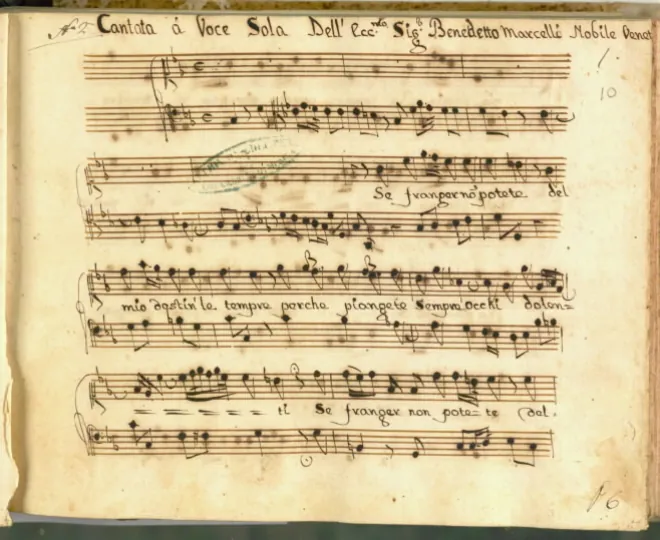 No. 2 Cantata á Voce Sola Dell' Ecc.mo Sig.r Benedetto Marcelli Nobile Venet
1
10
Se franger nõ potete del
mio destin' le tempre perche piangete Sempre occhi dolen=
= = = = = = ti Se franger non pote= te del.
6